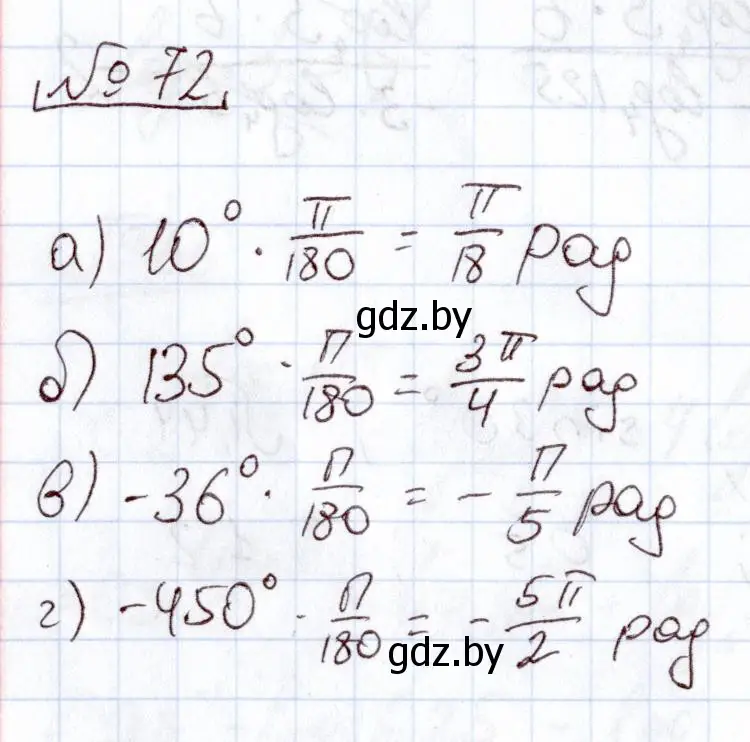 № 72
а) 10° · π/180 = π/18 рад
gdz.by
б) 135° · π/180 = 3π/4 рад
в) -36° · π/180 = - π/5 рад
г) -450° · π/180 = - 5π/2 рад
gdz.by